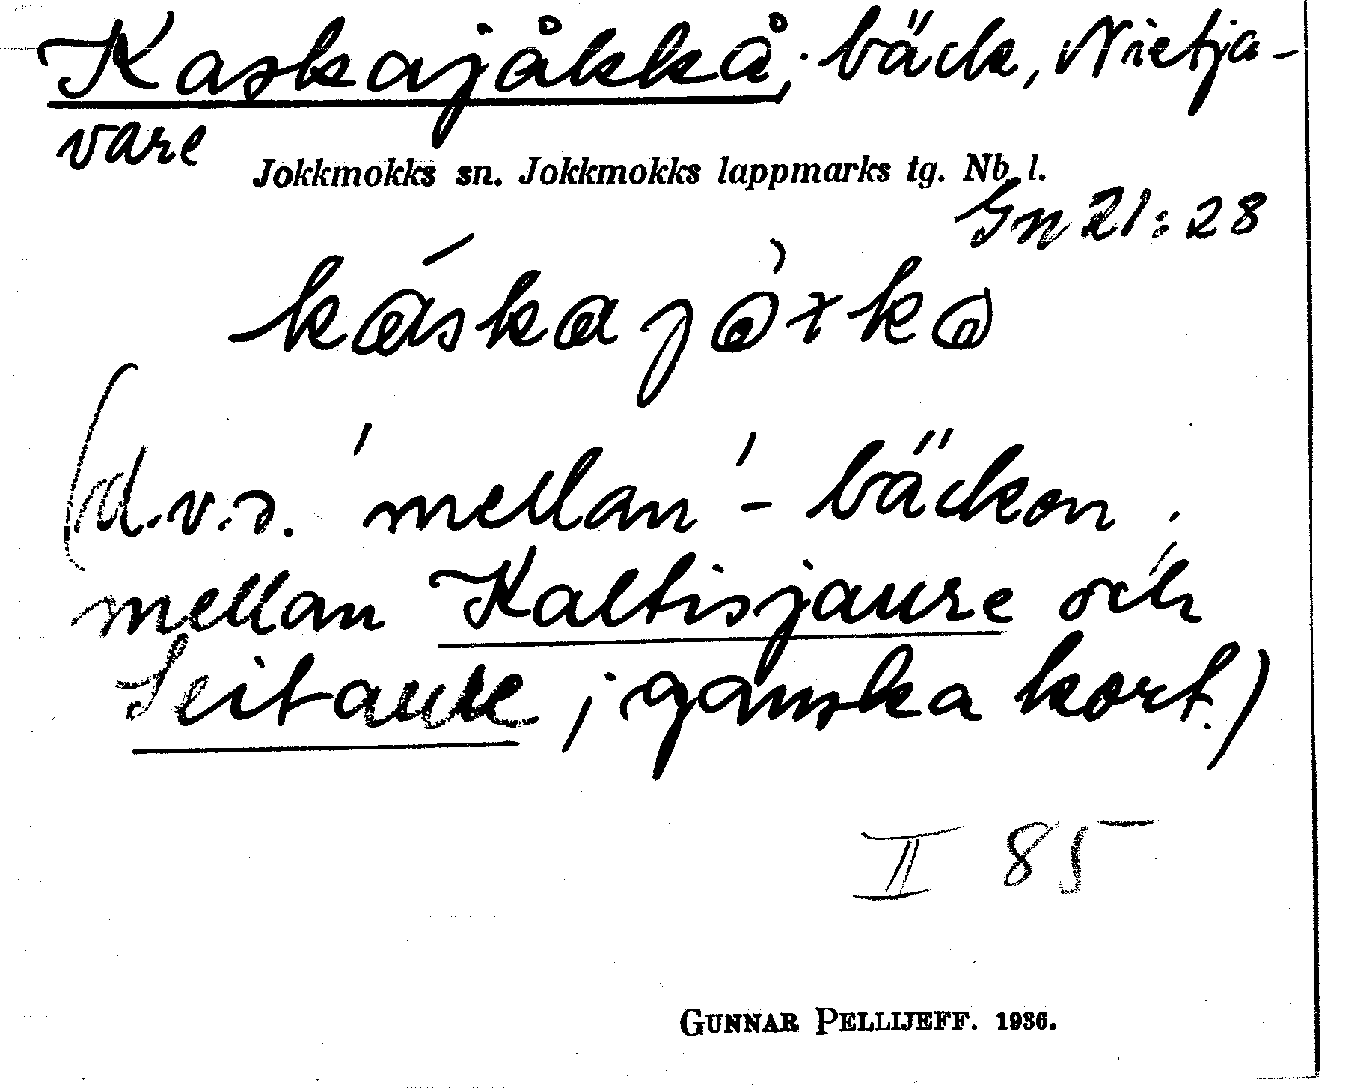 Kaskajåkkå; bäck, Nietja-
vare
Jokkmokks sn. Jokkmokks lappmarks tg. Nb. l.
Gn 21:28
(d.v.s. 'mellan'-bäcken;
mellan Kaltisjaure och
Seitaure; ganska kort.)
II 85
GUNNAR PELLIJEFF. 1936.